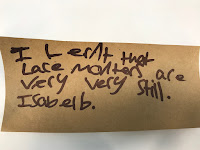 I Lernt that
Lace moniters are
very very still.
Isabelb.